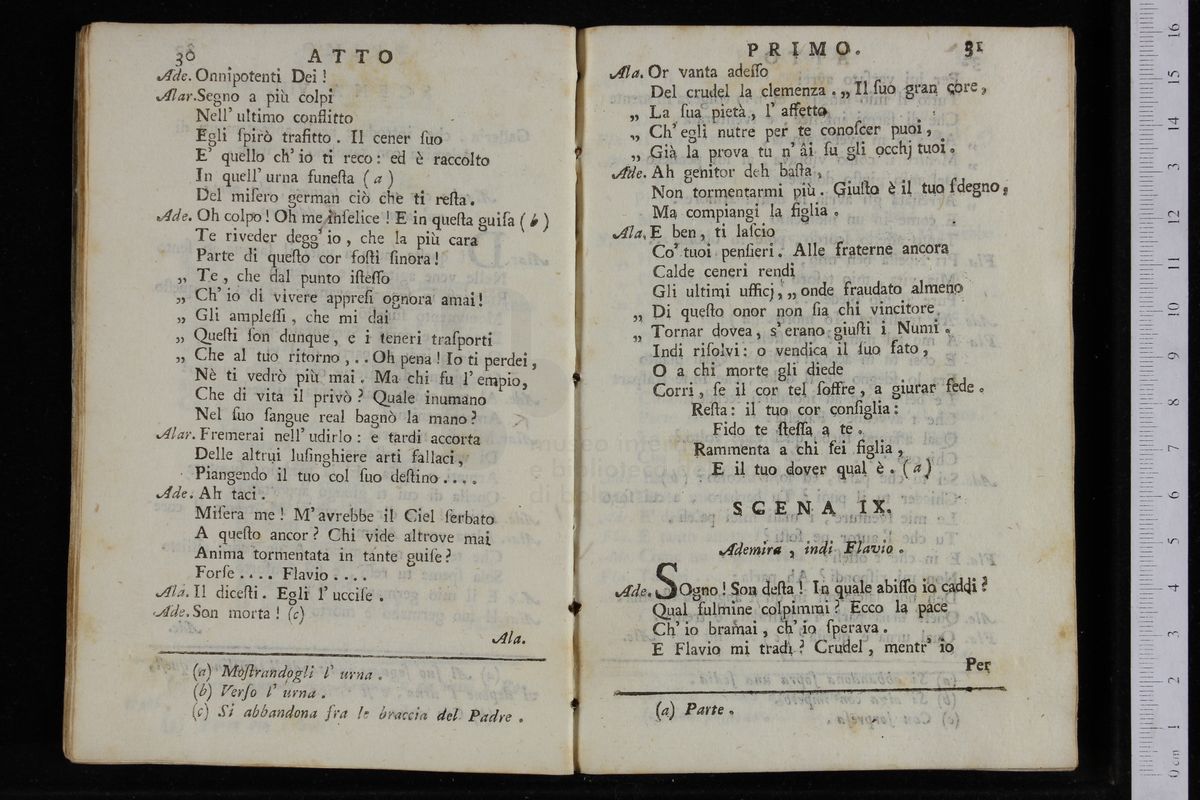 30 ATTO
Ade. Onnipotenti Dei !
Alar. Segno a più colpi
Nell' ultimo conflitto
Egli ſpirò trafitto . Il cener ſuo
E' quello ch' io ti reco : ed è raccolto
In quell' urna funeſta ( a )
Del miſero german ciò che ti reſta .
Ade. Oh colpo ! Oh me inſelice ! E in queſta guiſa ( b )
Te riveder degg' io , che la più cara
Parte di queſto cor foſti ſinora !
„ Te , che dal punto iſteſſo
„ Ch' io di vivere appreſi ognora amai !
„ Gli ampleſſi , che mi dai
„ Queſti ſon dunque , e i teneri traſporti
„ Che al tuo ritorno , . . Oh pena ! Io ti perdei ,
Nè ti vedrò più mai . Ma chi fu l' empio ,
Che di vita il privò ? Quale inumano
Nel ſuo ſangue real bagnò la mano ?
Alar. Fremerai nell' udirlo : e tardi accorta
Delle altrui luſinghiere arti fallaci ,
Piangendo il tuo col ſuo deſtino . . . .
Ade. Ah taci .
Miſera me ! M' avrebbe il Ciel ſerbato
A queſto ancor ? Chi vide altrove mai
Anima tormentata in tante guiſe ?
Forſe . . . . Flavio . . . .
Ala. Il diceſti . Egli l' ucciſe .
Ade. Son morta ! (c)
Ala.
(a) Moſtrandogli l' urna .
(b) Verſo l' urna .
(c) Si abbandona fra le braccia del Padre .
PRIMO. 31
Ala. Or vanta adeſſo
Del crudel la clemenza . „ Il ſuo gran core ,
„ La ſua pietà , l' affetto
„ Ch' egli nutre per te conoſcer puoi ,
„ Già la prova tu n' ài ſu gli occhj tuoi .
Ade. Ah genitor deh baſta ,
Non tormentarmi più . Giuſto è il tuo ſdegno ,
Ma compiangi la figlia .
Ala. E ben , ti laſcio
Co' tuoi penſieri . Alle fraterne ancora
Calde ceneri rendi
Gli ultimi ufficj , „ onde fraudato almeno
„ Di queſto onor non ſia chi vincitore
„ Tornar dovea , s' erano giuſti i Numi .
Indi riſolvi : o vendica il ſuo fato ,
O a chi morte gli diede
Corri , ſe il cor tel ſoffre , a giurar fede .
Reſta : il tuo cor conſiglia :
Fido te ſteſſa a te .
Rammenta a chi ſei figlia ,
E il tuo dover qual è . (a)
SCENA IX.
Ademira , indi Flavio .
Ade. SOgno ! Son deſta ! In quale abiſſo io caddi ?
Qual fulmine colpimmi ? Ecco la pace
Ch' io bramai , ch' io ſperava .
E Flavio mi tradì ? Crudel , mentr' io
Per
(a) Parte .